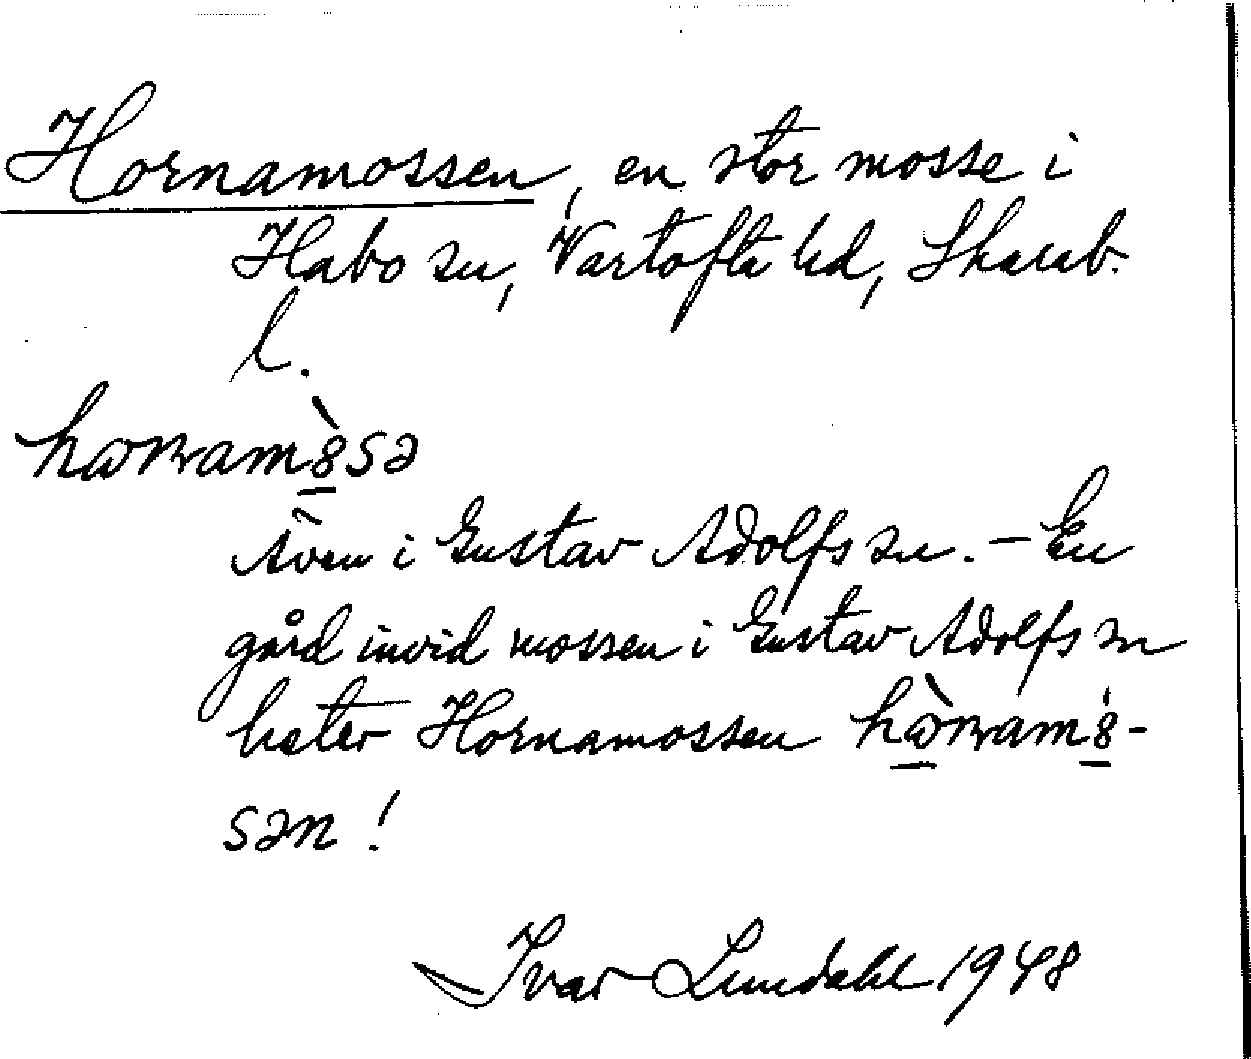 Hornamossen, en stor mosse i
Habo sn, Vartofta hd, Skarab.
l.
hɷrnam8̀sə
Även i Gustav Adolfs sn. – En
gård invid mossen i Gustav Adolfs sn
heter Hornamossen hɷ̀rnam8́-
sən!
Ivar Lundahl 1948